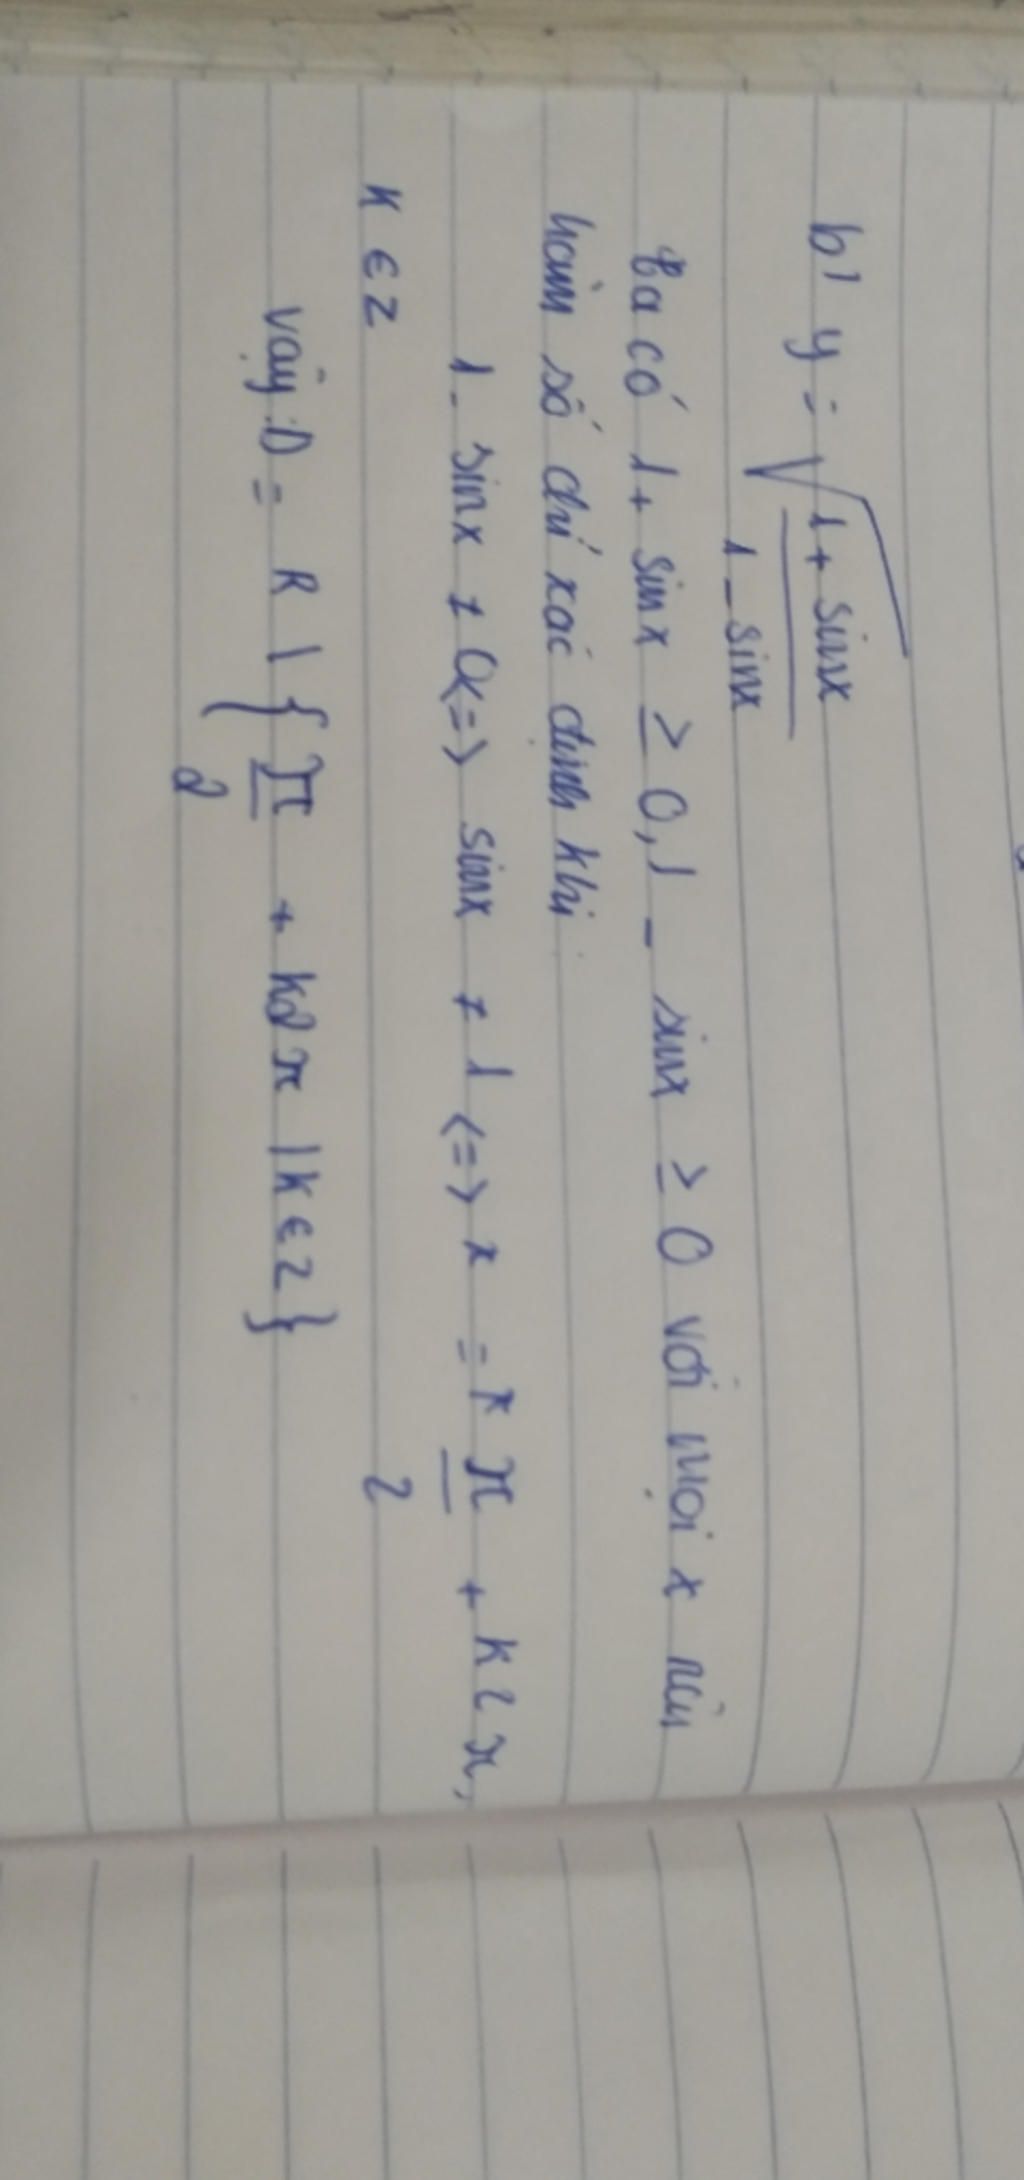 b) y = √
1 + sinx
1 - sinx
Ta có 1 + sinx ≥ 0, 1 - sinx ≥ 0 với mọi x nên
hàm số chỉ xác định khi
1 - sinx ≠ 0 <=> sinx ≠ 1 <=> x = π + k2π,
2
k ∈ z
vậy: D = R \ { π + k2π | k ∈ z }
2